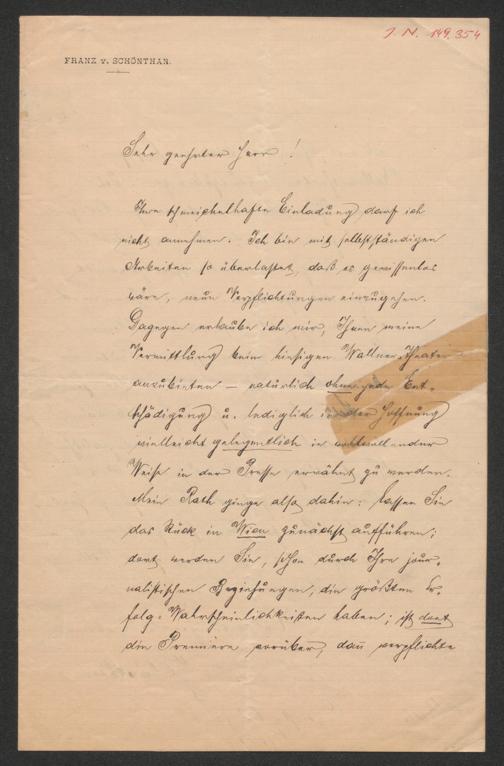 J. N. 149.354
FRANZ v. SCHÖNTHAN.
Sehr geehrter Herr!
Ihre schmeichelhafte Einladung darf ich
nicht annehmen. Ich bin mit selbstständigen
Arbeiten so überlastet, daß es gewissenlos
wäre, neue Verpflichtungen einzugehen.
Dagegen erlaube ich mir, Ihnen meine
Vermittlung beim hiesigen Wallner-Theater
anzubieten – natürlich ohne jede Ent-
schädigung u. lediglich in der Hoffnung
vielleicht gelegentlich in wohlwollender
Weise in der Presse erwähnt zu werden.
Mein Rath ginge also dahin: lassen Sie
das Stück in Wien zunächst aufführen;
dort werden Sie, schon durch Ihre jour-
nalistischen Beziehungen, die größten Er-
folg-Wahrscheinlichkeiten haben; ist dort
die Première vorüber, dan̄ verpflichte